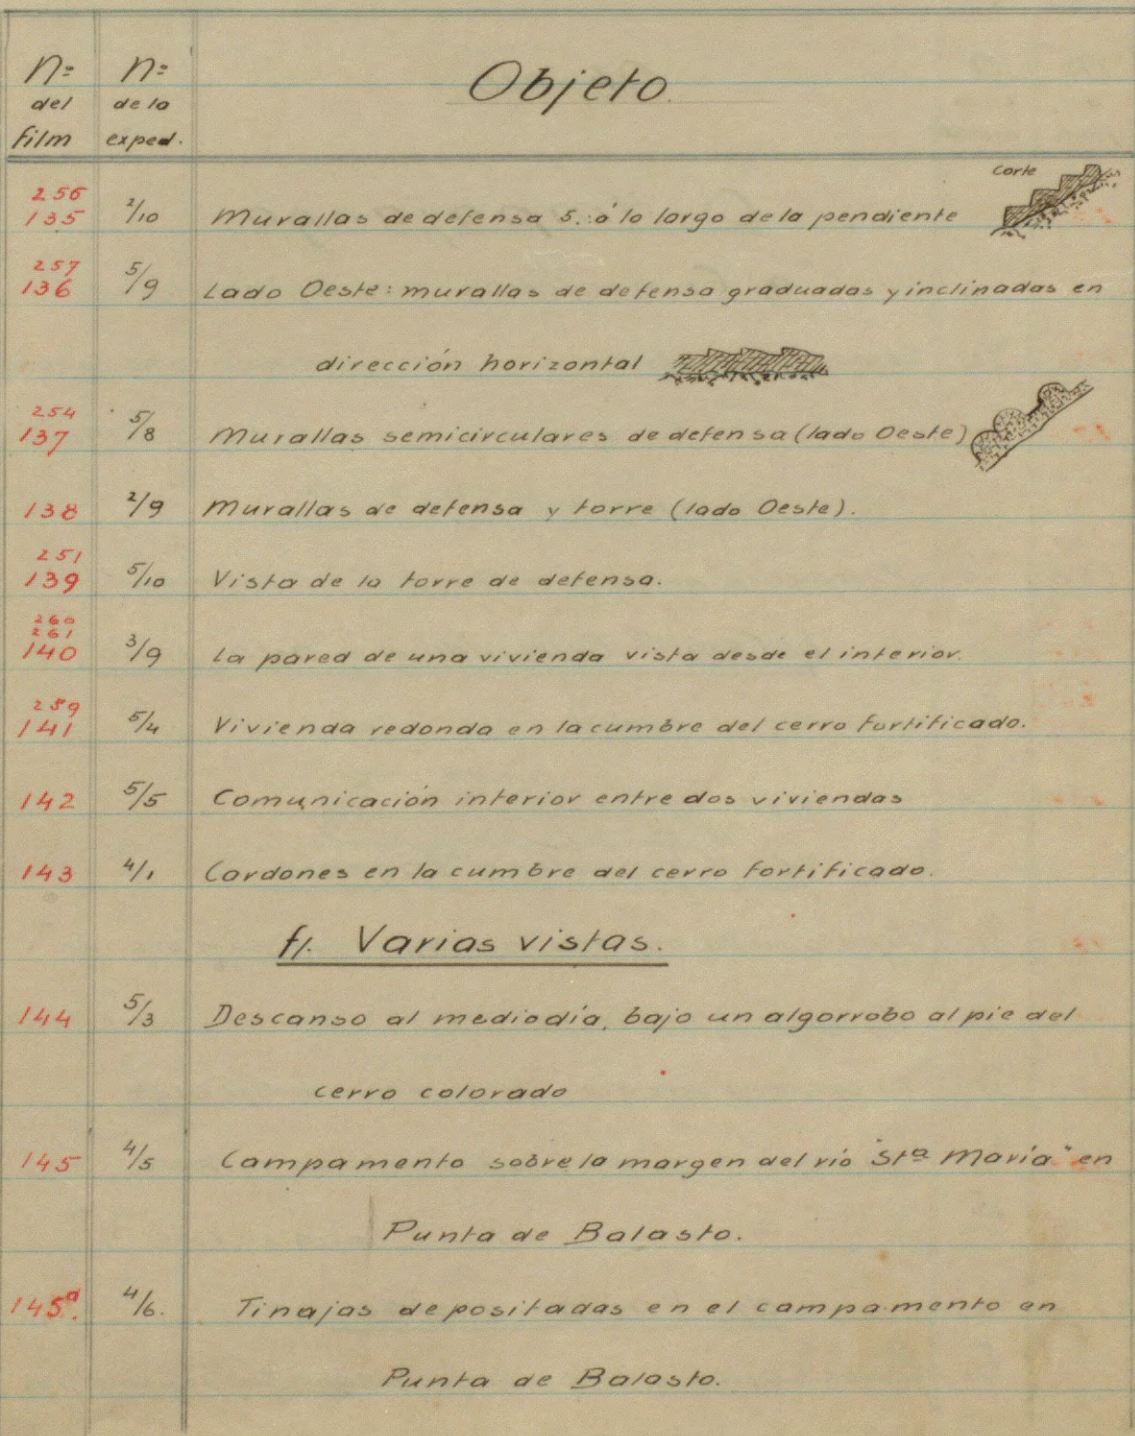 Nº Nº Objeto.
del de la
film exped.
corte
256
135 2/10 Murallas de defensa S. á lo largo de la pendiente
257
136 5/9 Lado Oeste: murallas de defensa graduadas y inclinadas en
dirección horizontal
254
137 5/8 Murallas semicirculares de defensa (lado Oeste)
138 2/9 Murallas de defensa y torre (lado Oeste).
251
139 5/10 Vista de la torre de defensa.
260
261
140 3/9 La pared de una vivienda vista desde el interior.
259
141 5/4 Vivienda redonda en la cumbre del cerro fortificado.
142 5/5 Comunicación interior entre dos viviendas
143 4/1 Cardones en la cumbre del cerro fortificado.
f/. Varias vistas.
144 5/3 Descanso al mediodía, bajo un algorrobo al pie del
cerro colorado
145 4/5 Campamento sobre la margen del río "Stª María" en
Punta de Balasto.
145ª. 4/6. Tinajas depositadas en el campamento en
Punta de Balasto.